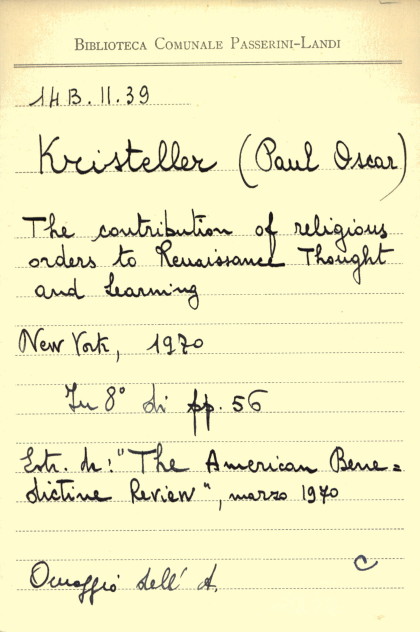 BIBLIOTECA COMUNALE PASSERINI-LANDI
14 B. II. 39
Kristeller (Paul Oscar)
The contribution of religious
orders to Renaissance Thought
and Learning
New York, 1970
In 8° di pp. 56
Estr. da: "The American Bene=
dictine Review", marzo 1970
C
Omaggio dell' A.